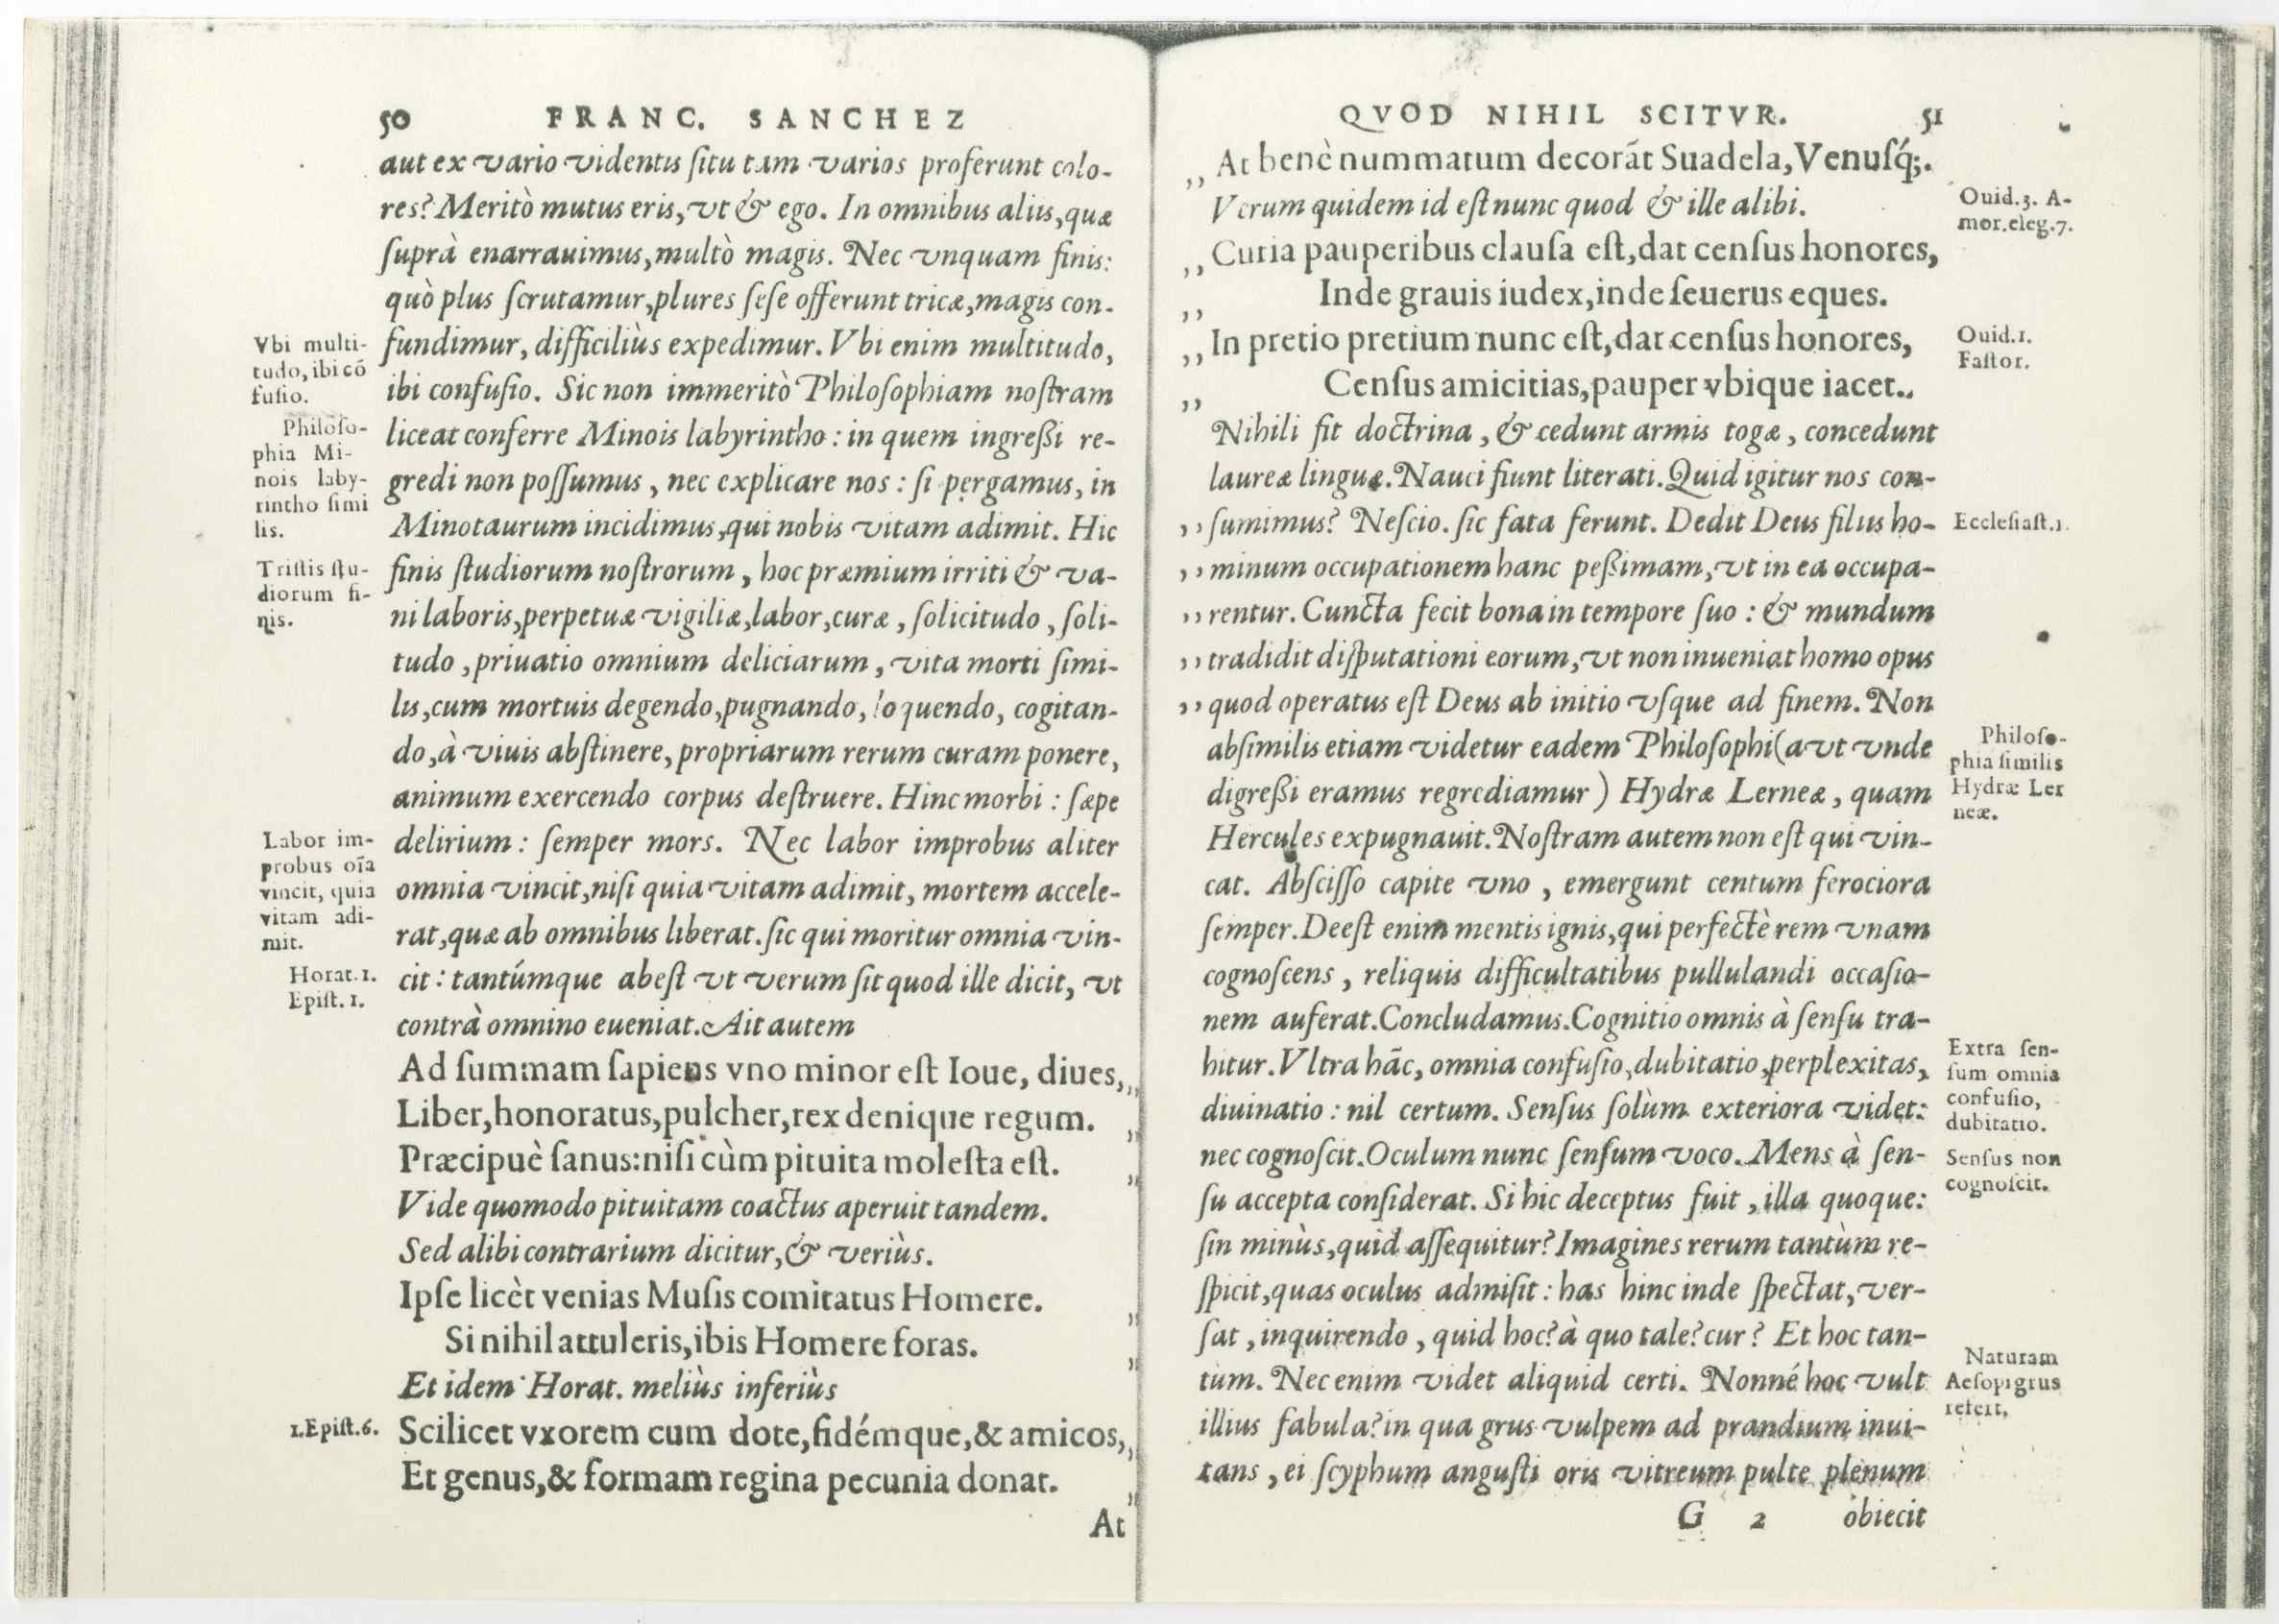 50 FRANC. SANCHEZ
aut ex vario videntis ſitu tam varios proferunt colo-
res? Meritò mutus eris, vt & ego. In omnibus aliis, quæ
ſuprà enarrauimus, multò magis. Nec vnquam finis:
quò plus ſcrutamur, plures ſeſe offerunt tricæ, magis con-
fundimur, difficiliùs expedimur. Vbi enim multitudo,
ibi confuſio. Sic non immeritò Philoſophiam noſtram
liceat conferre Minois labyrintho: in quem ingreßi re-
gredi non poſſumus, nec explicare nos: ſi pergamus, in
Minotaurum incidimus, qui nobis vitam adimit. Hic
finis ſtudiorum noſtrorum, hoc præmium irriti & va-
ni laboris, perpetuæ vigiliæ, labor, curæ, ſolicitudo, ſoli-
tudo, priuatio omnium deliciarum, vita morti ſimi-
lis, cum mortuis degendo, pugnando, loquendo, cogitan-
do, à viuis abſtinere, propriarum rerum curam ponere,
animum exercendo corpus deſtruere. Hinc morbi: ſæpe
delirium: ſemper mors. Nec labor improbus aliter
omnia vincit, niſi quia vitam adimit, mortem accele-
rat, quæ ab omnibus liberat. ſic qui moritur omnia vin-
cit: tantúmque abeſt vt verum ſit quod ille dicit, vt
contrà omnino eueniat. Ait autem
Ad ſummam ſapiens vno minor eſt Ioue, diues,,,
Liber, honoratus, pulcher, rex denique regum. ,,
Præcipuè ſanus: niſi cùm pituita moleſta eſt. ,,
Vide quomodo pituitam coactus aperuit tandem.
Sed alibi contrarium dicitur, & veriùs.
Ipſe licèt venias Muſis comitatus Homere. ,,
Si nihil attuleris, ibis Homere foras. ,,
Et idem Horat. meliùs inferiùs
Scilicet vxorem cum dote, fidémque, & amicos,,,
Et genus, & formam regina pecunia donat. ,,
At
Vbi multi-
tudo, ibi cõ
fuſio.
Philoſo-
phia Mi-
nois laby-
rintho ſimi
lis.
Triſtis ſtu-
diorum fi-
nis.
Labor im-
probus oĩa
vincit, quia
vitam adi-
mit.
Horat. 1.
Epiſt. 1.
1. Epiſt. 6.
QVOD NIHIL SCITVR. 51
,, At benè nummatum decorãt Suadela, Venuſq́;.
Verum quidem id eſt nunc quod & ille alibi.
,, Curia pauperibus clauſa eſt, dat cenſus honores,
,, Inde grauis iudex, inde ſeuerus eques.
,, In pretio pretium nunc eſt, dat cenſus honores,
,, Cenſus amicitias, pauper vbique iacet..
Nihili fit doctrina, & cedunt armis togæ, concedunt
laureæ linguæ. Nauci fiunt literati. Quid igitur nos con-
,, ſumimus? Neſcio. ſic fata ferunt. Dedit Deus filiis ho-
,, minum occupationem hanc peßimam, vt in ea occupa-
,, rentur. Cuncta fecit bona in tempore ſuo: & mundum
,, tradidit diſputationi eorum, vt non inueniat homo opus
,, quod operatus eſt Deus ab initio vſque ad finem. Non
abſimilis etiam videtur eadem Philoſophi(a vt vnde
digreßi eramus regrediamur) Hydræ Lerneæ, quam
Hercules expugnauit. Noſtram autem non eſt qui vin-
cat. Abſciſſo capite vno, emergunt centum ferociora
ſemper. Deeſt enim mentis ignis, qui perfectè rem vnam
cognoſcens, reliquis difficultatibus pullulandi occaſio-
nem auferat. Concludamus. Cognitio omnis à ſenſu tra-
hitur. Vltra hãc, omnia confuſio, dubitatio, perplexitas,
diuinatio: nil certum. Senſus ſolùm exteriora videt:
nec cognoſcit. Oculum nunc ſenſum voco. Mens à ſen-
ſu accepta conſiderat. Si hic deceptus fuit, illa quoque:
ſin minùs, quid aſſequitur? Imagines rerum tantùm re-
ſpicit, quas oculus admiſit: has hinc inde ſpectat, ver-
ſat, inquirendo, quid hoc? à quo tale? cur? Et hoc tan-
tùm. Nec enim videt aliquid certi. Nonné hoc vult
illius fabula? in qua grus vulpem ad prandium inui-
tans, ei ſcyphum anguſti oris vitreum pulte plenum
G 2 obiecit
Ouid. 3. A-
mor. eleg. 7.
Ouid. 1.
Faſtor.
Eccleſiaſt. 1.
Philoſo-
phia ſimilis
Hydræ Ler
neæ.
Extra ſen-
ſum omnia
confuſio,
dubitatio.
Senſus non
cognoſcit.
Naturam
Aeſopi grus
refert,